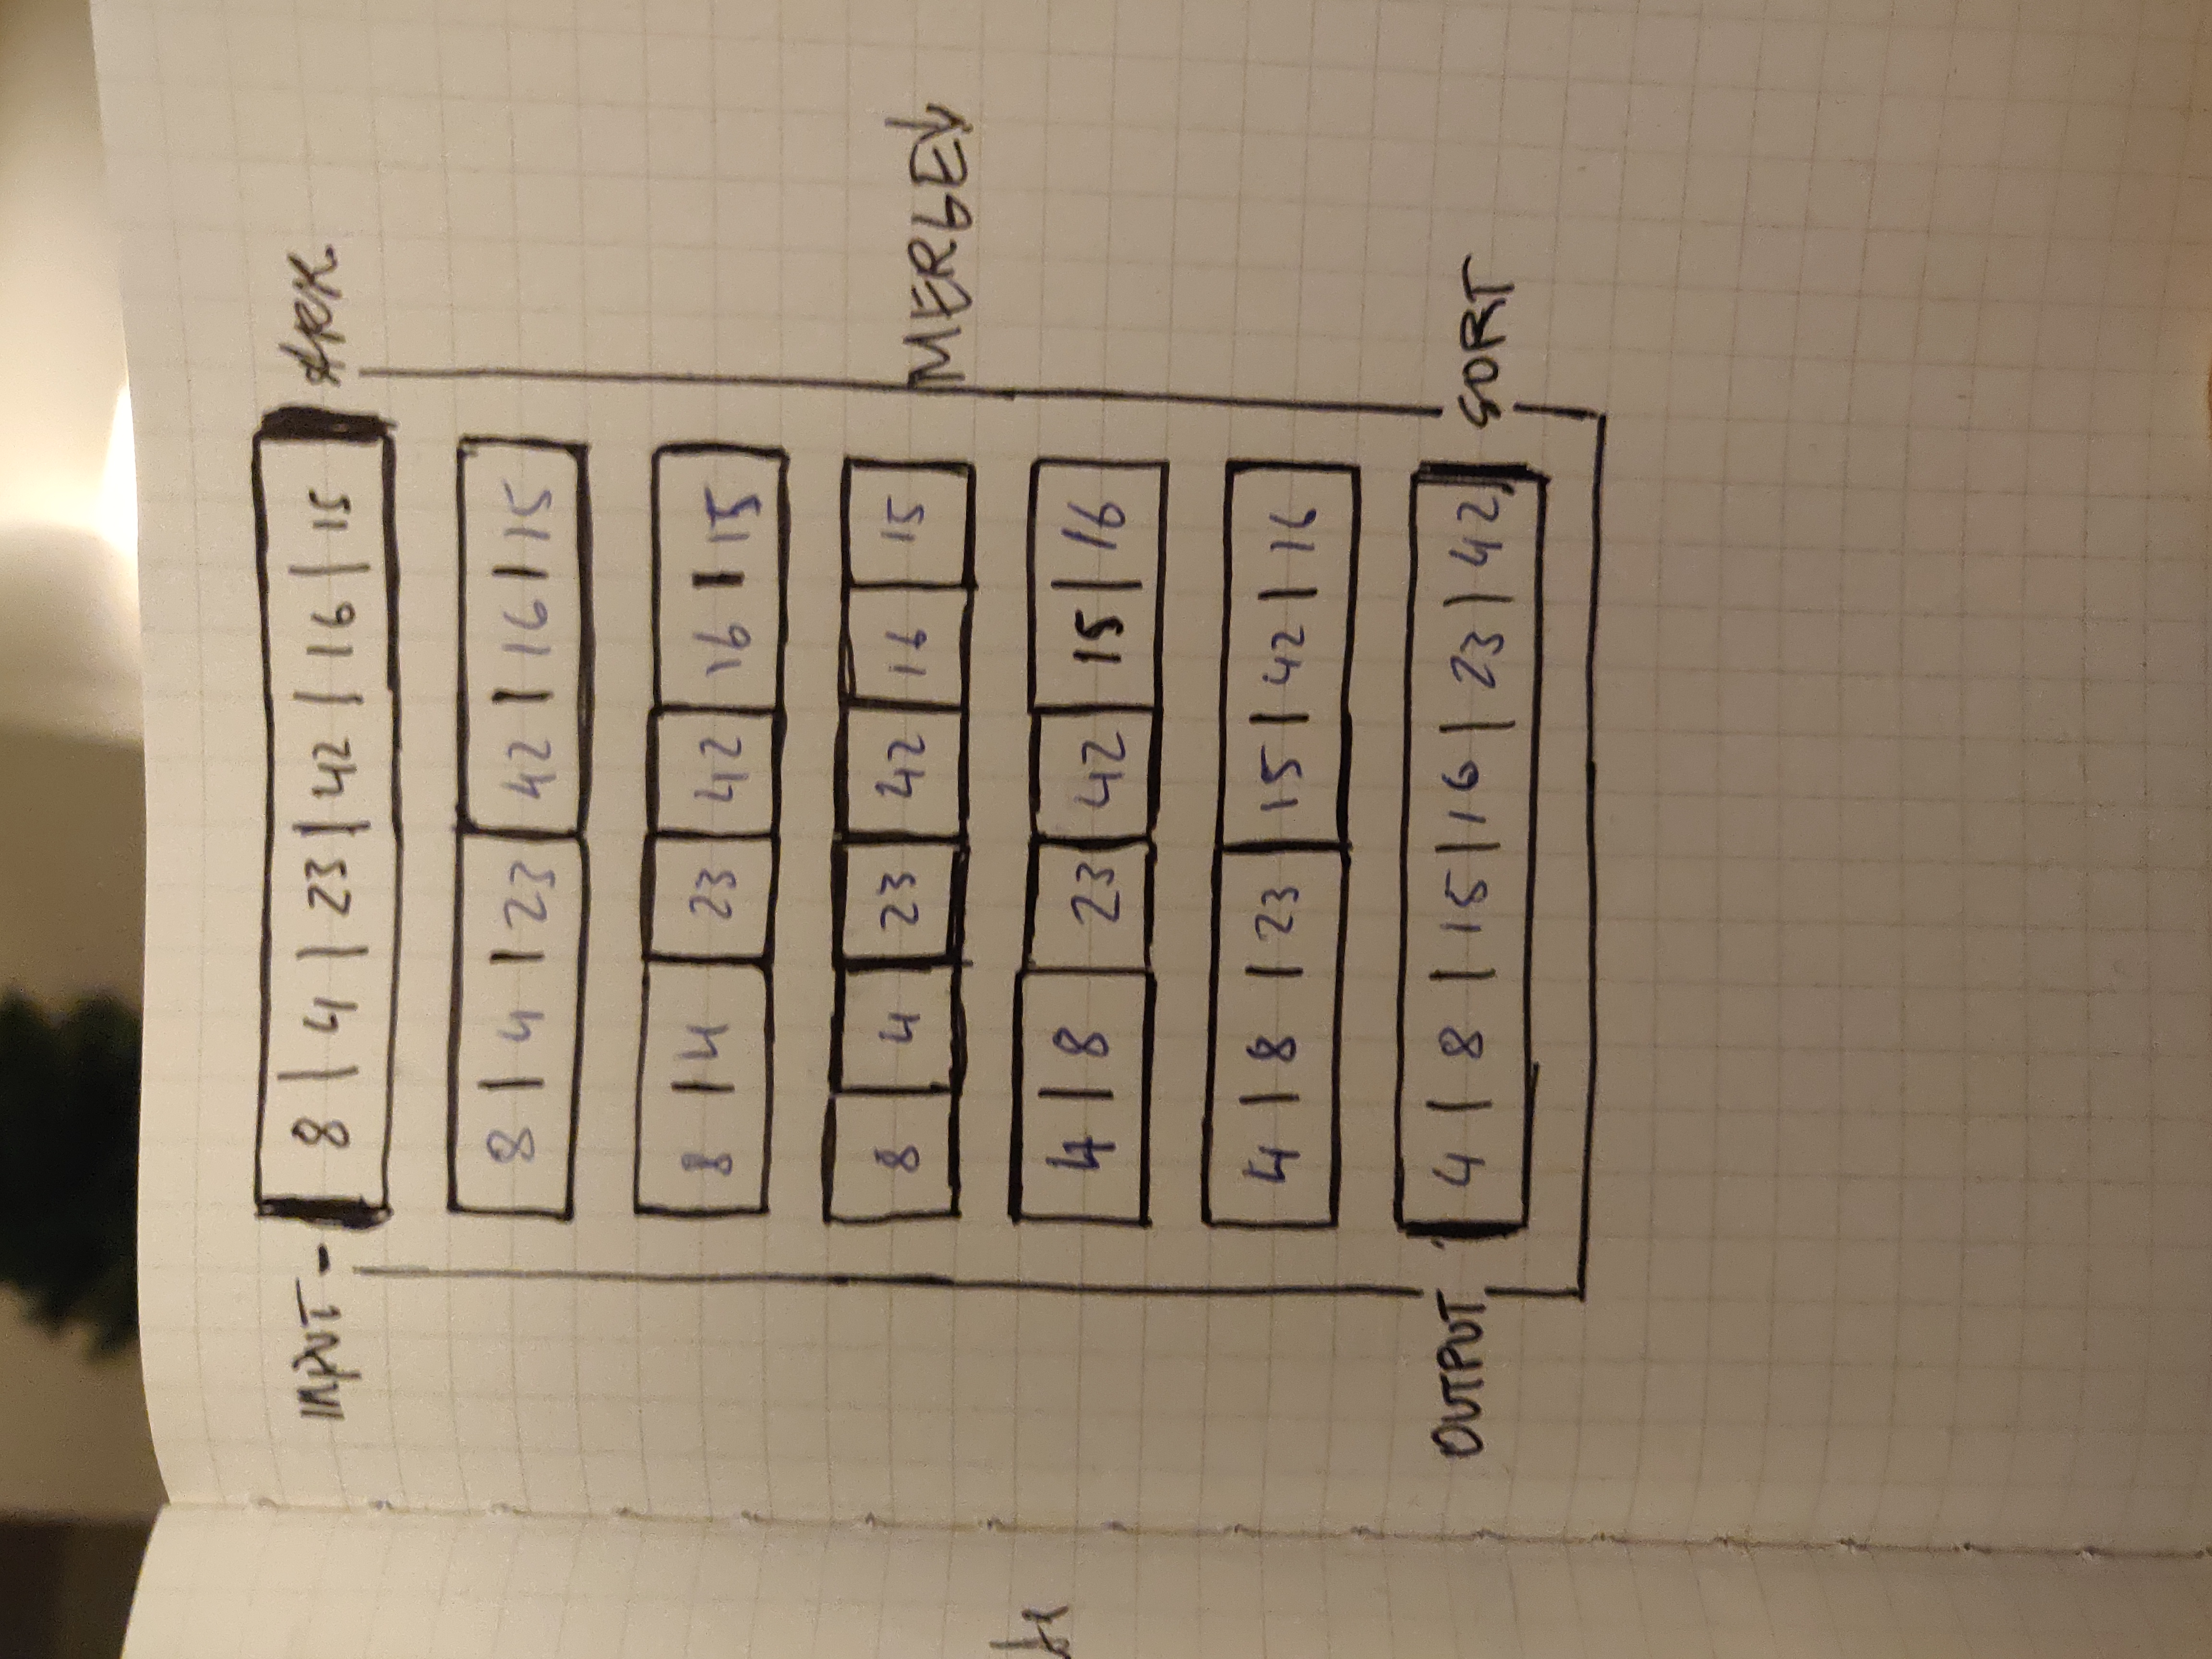 INPUT - 8 | 4 | 23 | 42 | 16 | 15 ARR
8 | 4 | 23 | 42 | 16 | 15
8 | 4 | 23 | 42 | 16 | 15
8 | 4 | 23 | 42 | 16 | 15
MERGE↓
4 | 8 | 23 | 42 | 15 | 16
4 | 8 | 23 | 15 | 42 | 16
OUTPUT 4 | 8 | 15 | 16 | 23 | 42 SORT